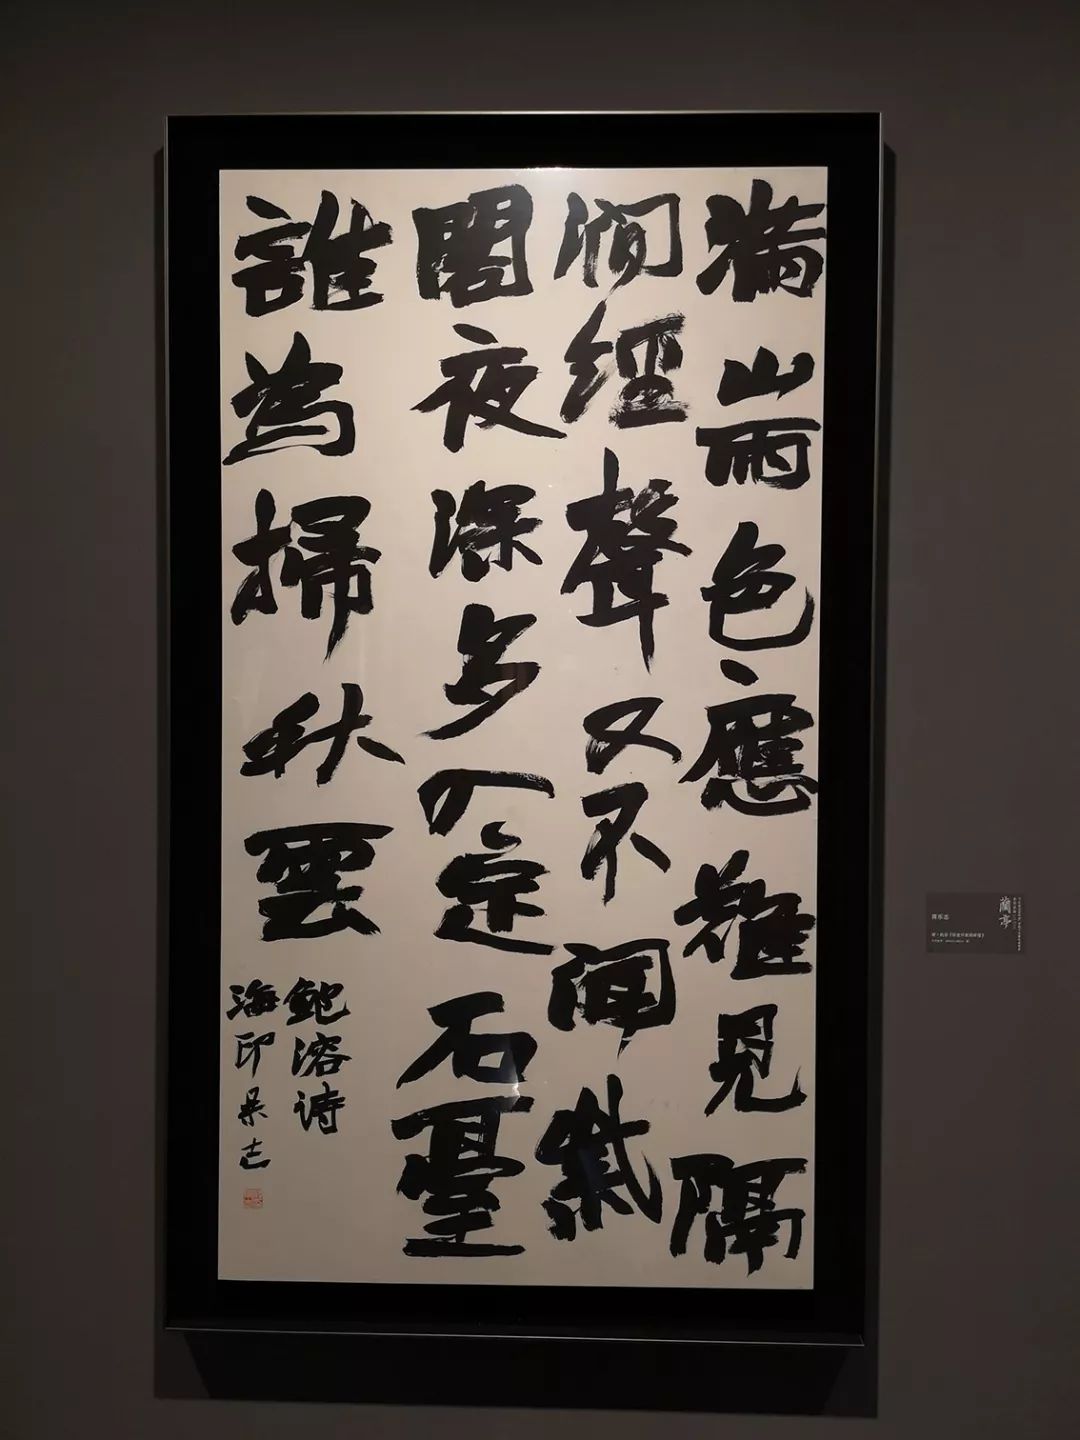 满山雨色應難見隔
澗經聲又不聞氣
閣夜深多入定石臺
誰為掃秋雲
鲍溶诗
海印吴志
蘭亭